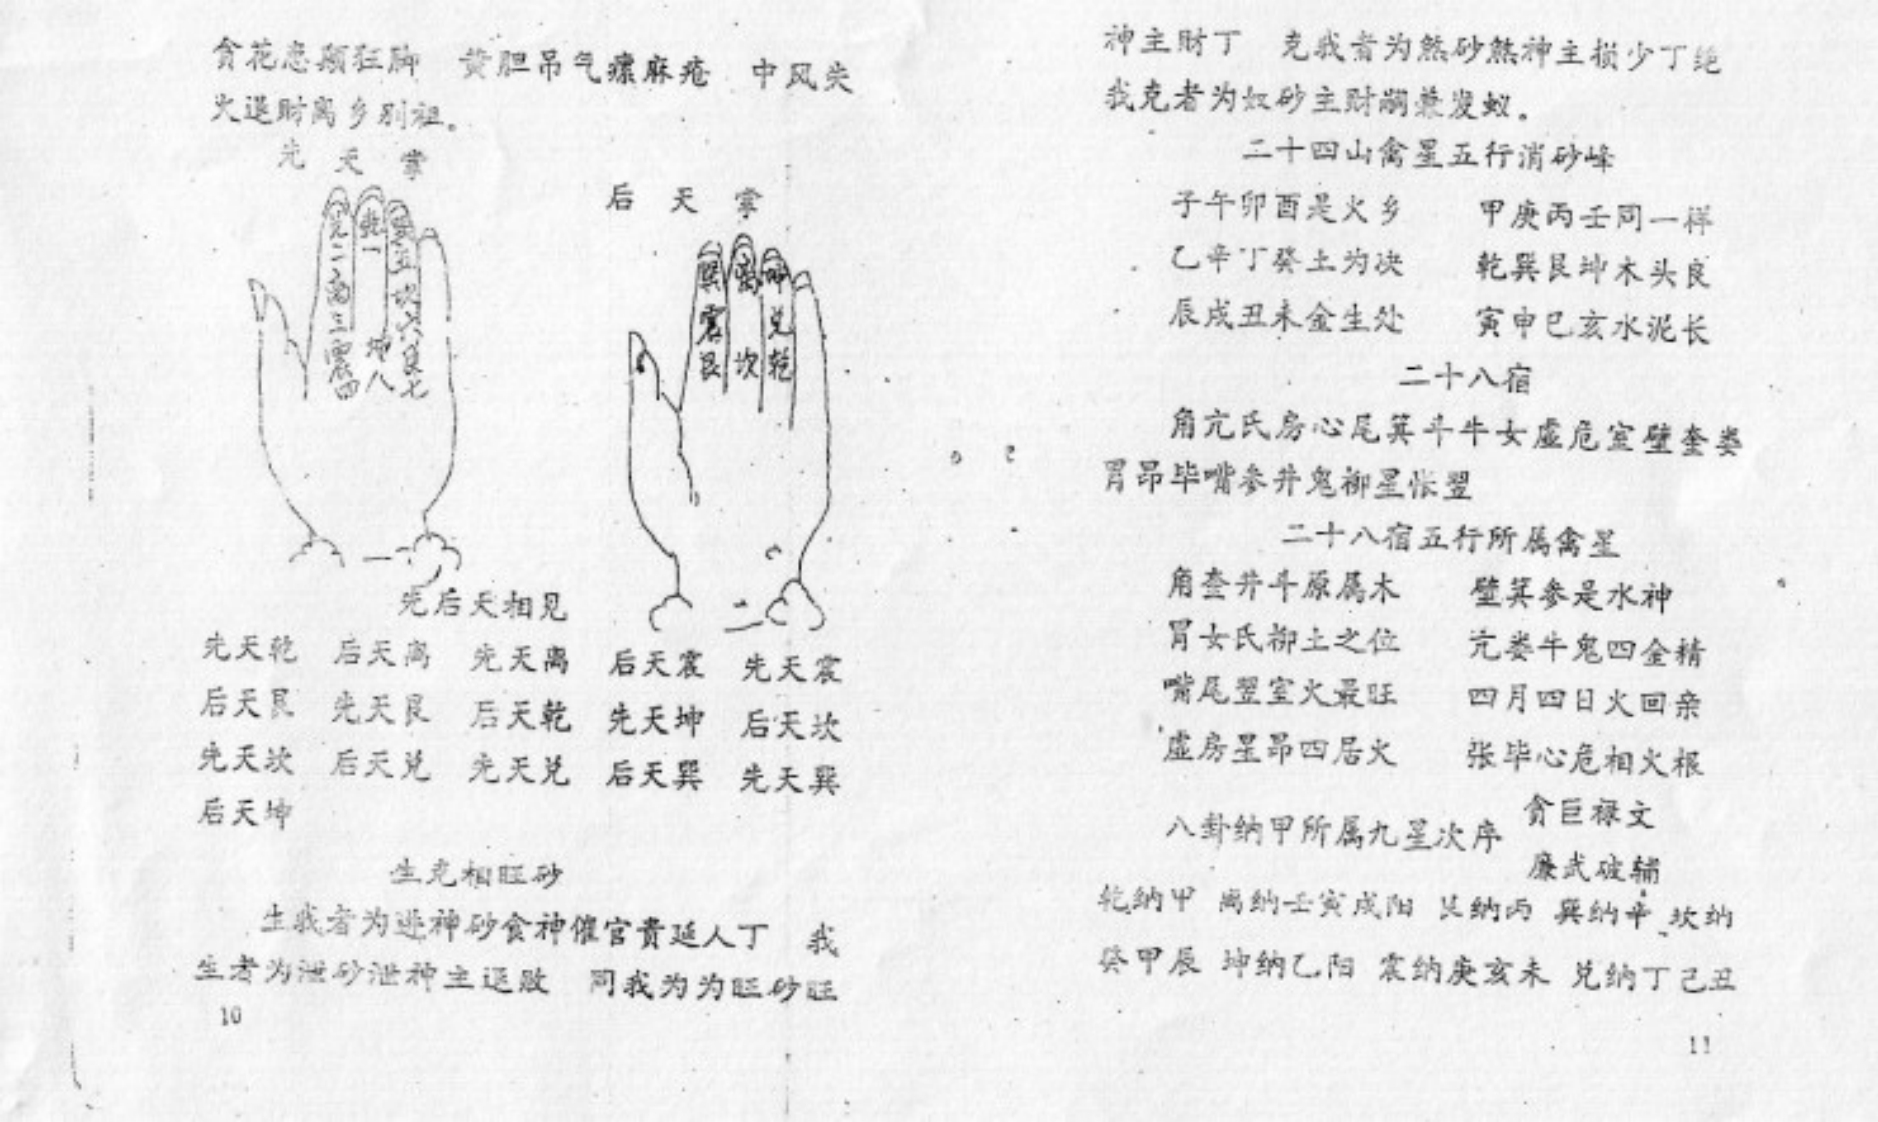 贪花患颠狂脚 黄胆吊气瘰麻疮 中风失
火退财离乡别祖。
先天掌
兑二离三震四
乾一
坤八
巽五坎六艮七
一
后天掌
巽震艮
离坎
坤兑乾
二
先后天相见
先天乾 后天离 先天离 后天震 先天震
后天艮 先天艮 后天乾 先天坤 后天坎
先天坎 后天兑 先天兑 后天巽 先天巽
后天坤
生克相旺砂
生我者为进神砂食神催官贵延人丁 我
生者为泄砂泄神主退败 同我为为旺砂旺
10
神主财丁 克我者为煞砂煞神主损少丁绝
我克者为奴砂主财嗣兼发蚁。
二十四山禽星五行消砂峰
子午卯酉是火乡 甲庚丙壬同一样
乙辛丁癸土为决 乾巽艮坤木头良
辰戌丑未金生处 寅申巳亥水泥长
二十八宿
角亢氐房心尾箕斗牛女虚危室壁奎娄
胃昴毕嘴参井鬼柳星张翌
二十八宿五行所属禽星
角奎井斗原属木 壁箕参是水神
胃女氐柳土之位 亢娄牛鬼四金精
嘴尾翌室火最旺 四月四日火回亲
虚房星昴四居火 张毕心危相火根
八卦纳甲所属九星次序 贪巨禄文
廉武破辅
乾纳甲 离纳壬寅戌阳 艮纳丙 巽纳辛 坎纳
癸甲辰 坤纳乙阳 震纳庚亥未 兑纳丁己丑
11